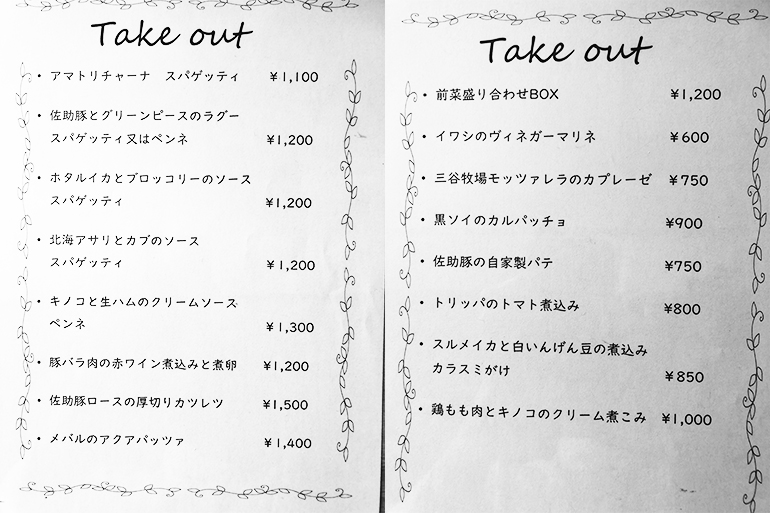 Take out
・アマトリチャーナ　スパゲッティ　¥1,100
・佐助豚とグリーンピースのラグー
スパゲッティ又はペンネ　¥1,200
・ホタルイカとブロッコリーのソース
スパゲッティ　¥1,200
・北海アサリとカブのソース
スパゲッティ　¥1,200
・キノコと生ハムのクリームソース
ペンネ　¥1,300
・豚バラ肉の赤ワイン煮込みと煮卵　¥1,200
・佐助豚ロースの厚切りカツレツ　¥1,500
・メバルのアクアパッツァ　¥1,400
Take out
・前菜盛り合わせBOX　¥1,200
・イワシのヴィネガーマリネ　¥600
・三谷牧場モッツァレラのカプレーゼ　¥750
・黒ソイのカルパッチョ　¥900
・佐助豚の自家製パテ　¥750
・トリッパのトマト煮込み　¥800
・スルメイカと白いんげん豆の煮込み
カラスミがけ　¥850
・鶏もも肉とキノコのクリーム煮こみ　¥1,000